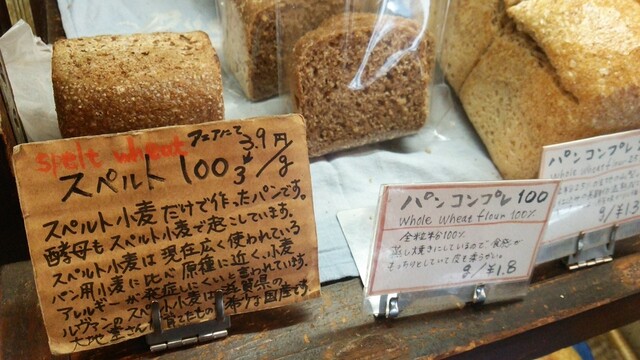 spelt wheat
フェアにて
3.9円/g
3
スペルト 100
スペルト小麦だけで作ったパンです。
酵母もスペルト小麦で起こしています。
スペルト小麦は現在広く使われている
パン用小麦に比べ原種に近く、小麦
アレルギーが発症しにくいと言われています。
スペルト小麦は滋賀県の
大地
希少な国産です
パン コンプレ 100
Whole Wheat flour 100%
全粒粉100%
蒸し焼きにしているので食感が
もっちりとしていて皮も柔らかい。
g/¥1.8
パンコンプレ
Whole wheat
g/¥1